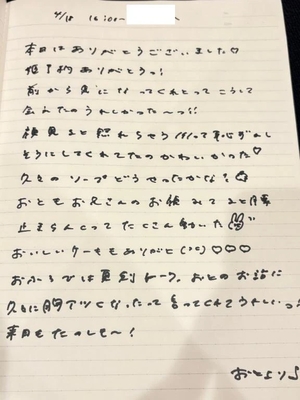 4/18 16:00〜 へ
本日はありがとうございました♡
指名ありがとうっ!
前から気になってくれとってこうして
会えたのうれしかった〜っ!!
顔見ると照れちゃう///って恥ずかし
そうにしてくれてたのかわいかった♡
久々のソープどうやったかな?
おともお兄さんのお顔みてると腰
止まらんくってたくさん動いた
おいしいケーキもありがと(˙˙)♡♡♡
おふろでは真剣トーク。おとのお話に
久々に胸アツくなったって言ってくれてうれしいっ
来日もたのしも〜!
おとより